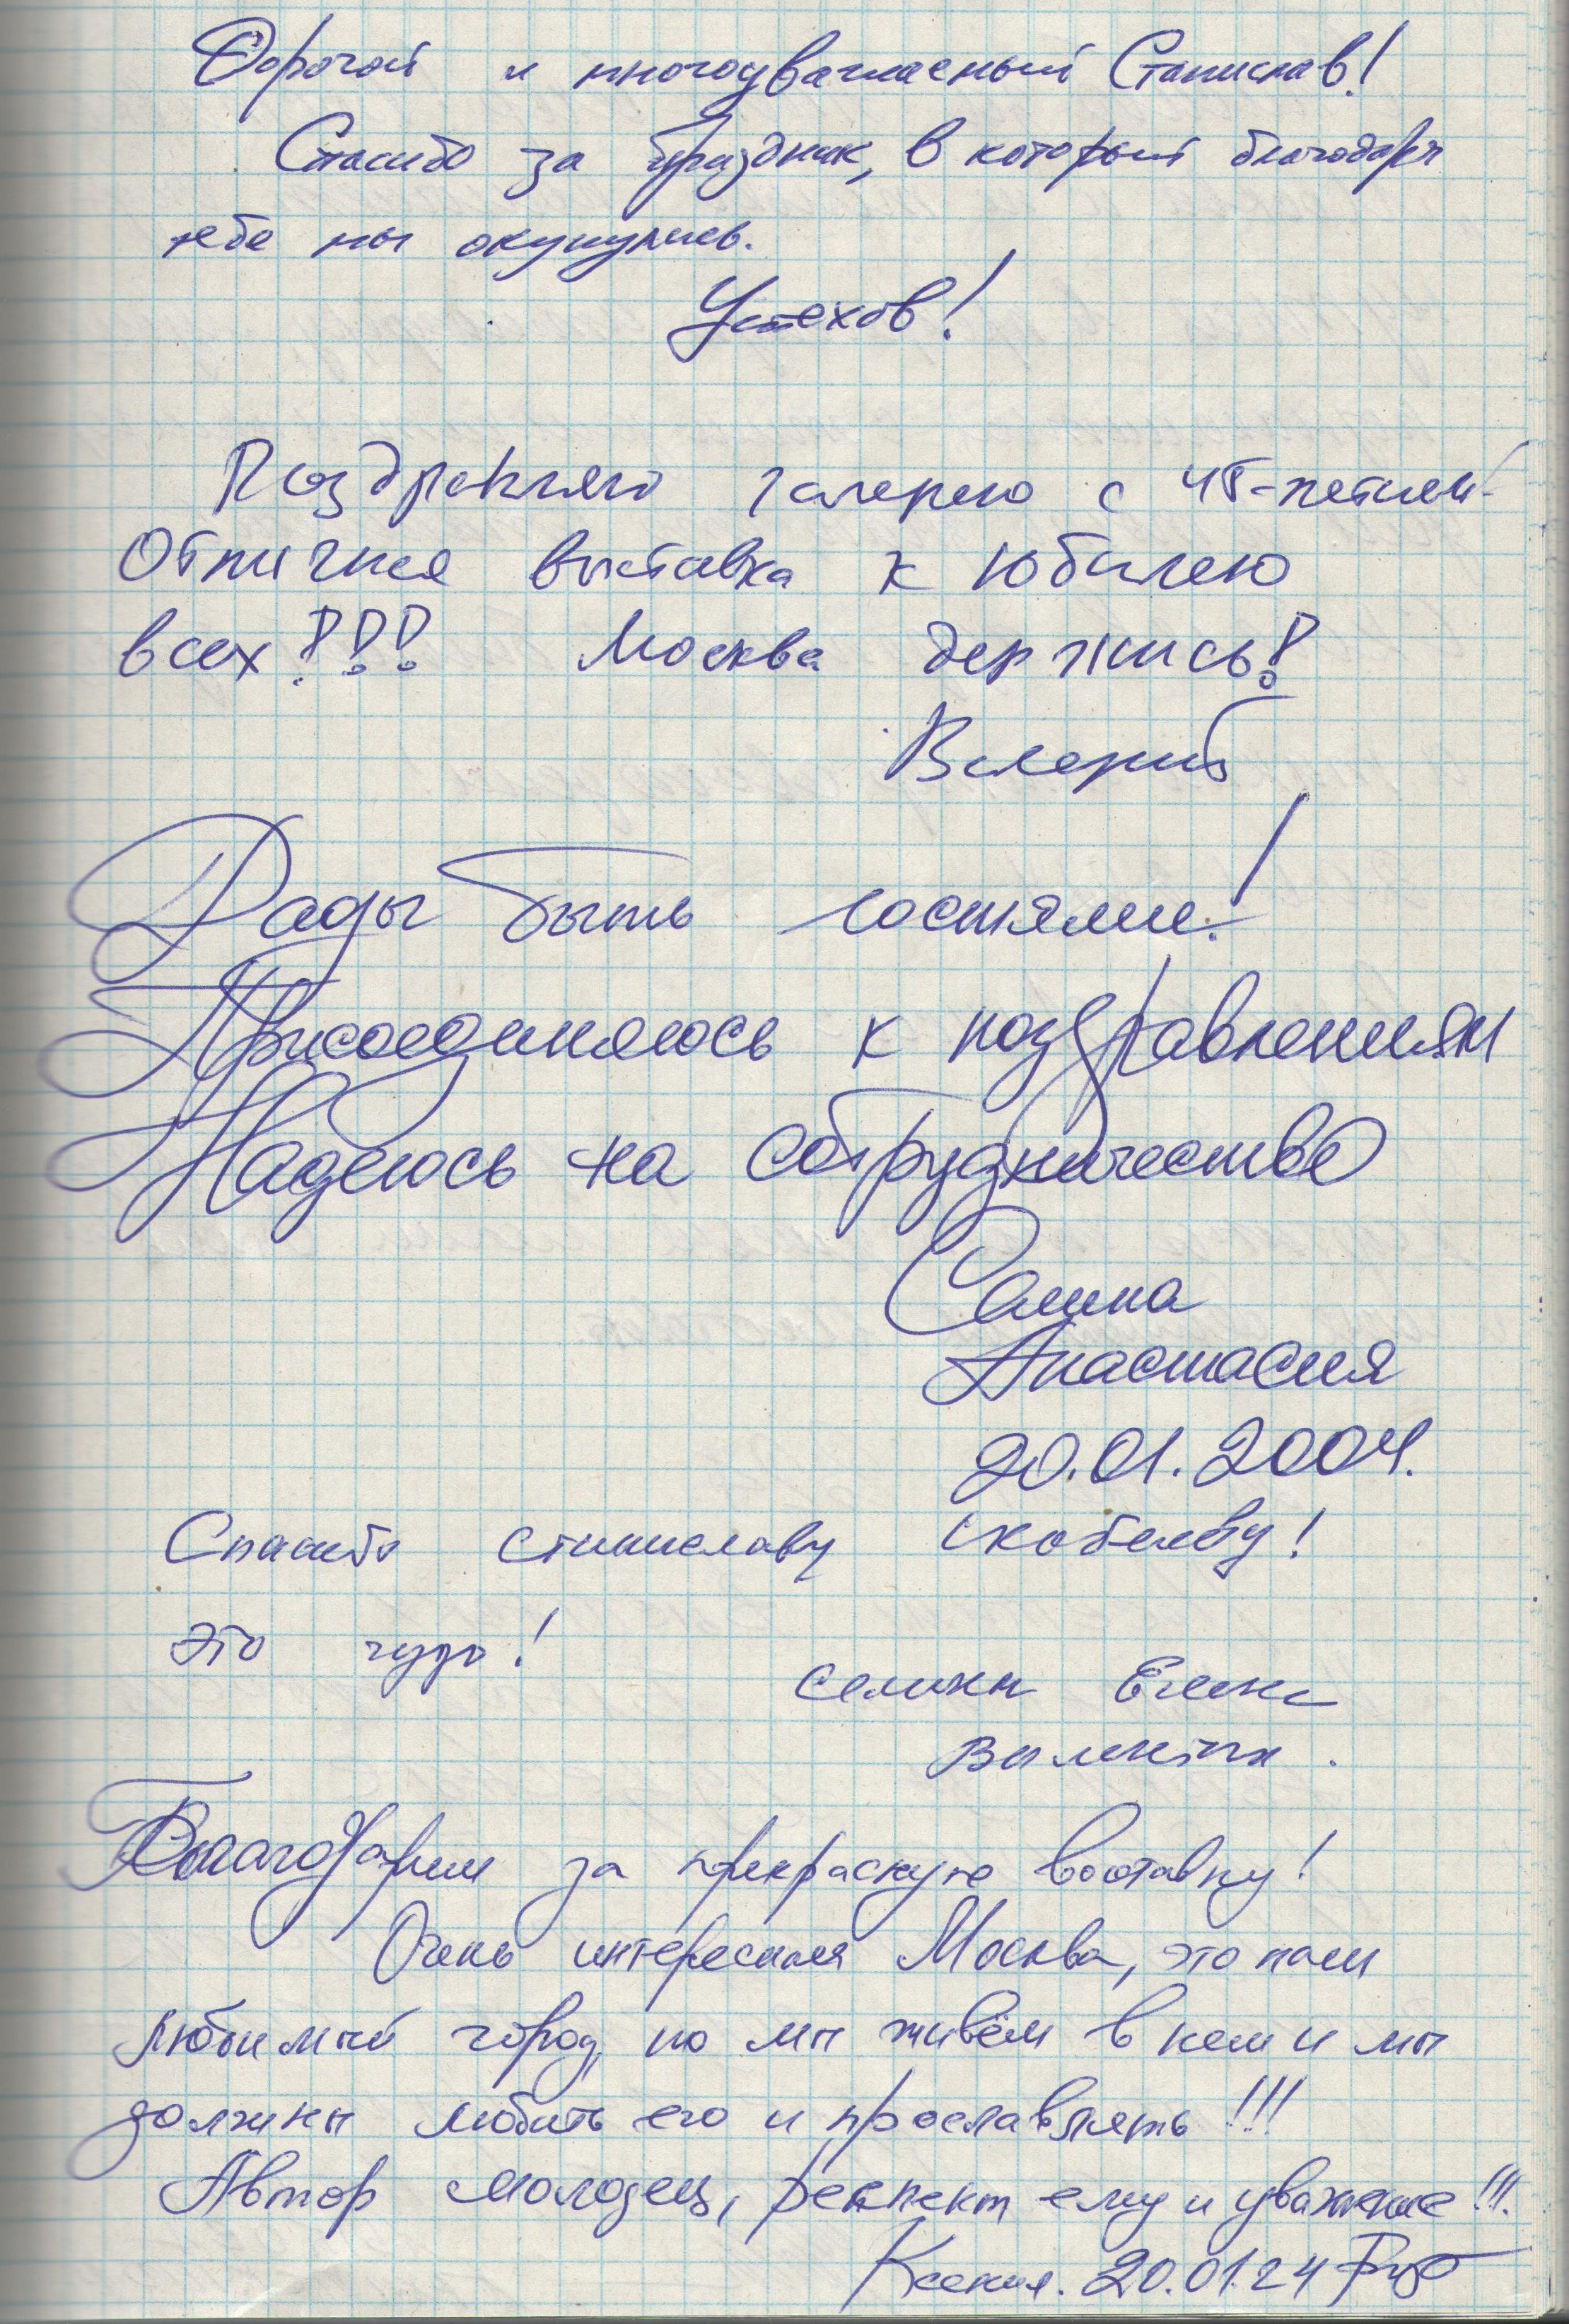 Дорогой и многоуважаемый Станислав!
Спасибо за праздник, в который благодаря
тебе мы окунулись.
Успехов!
Поздравляю галерею с 45-летием
Отличная выставка к юбилею
всех!!! Москва держись!
Валерий
Рады быть гостями!
Присоединяюсь к поздравлениям
Надеюсь на сотрудничество
Анастасия
20.01.2004.
Спасибо Станиславу Скобелеву!
Это чудо!
Елена
Благодарим за прекрасную выставку!
Очень интересная Москва, это наш
любимый город, но мы живём в нем и мы
должны любить его и прославлять!!!
Автор молодец, респект ему и уважение!!!.
Ксения. 20.01.24